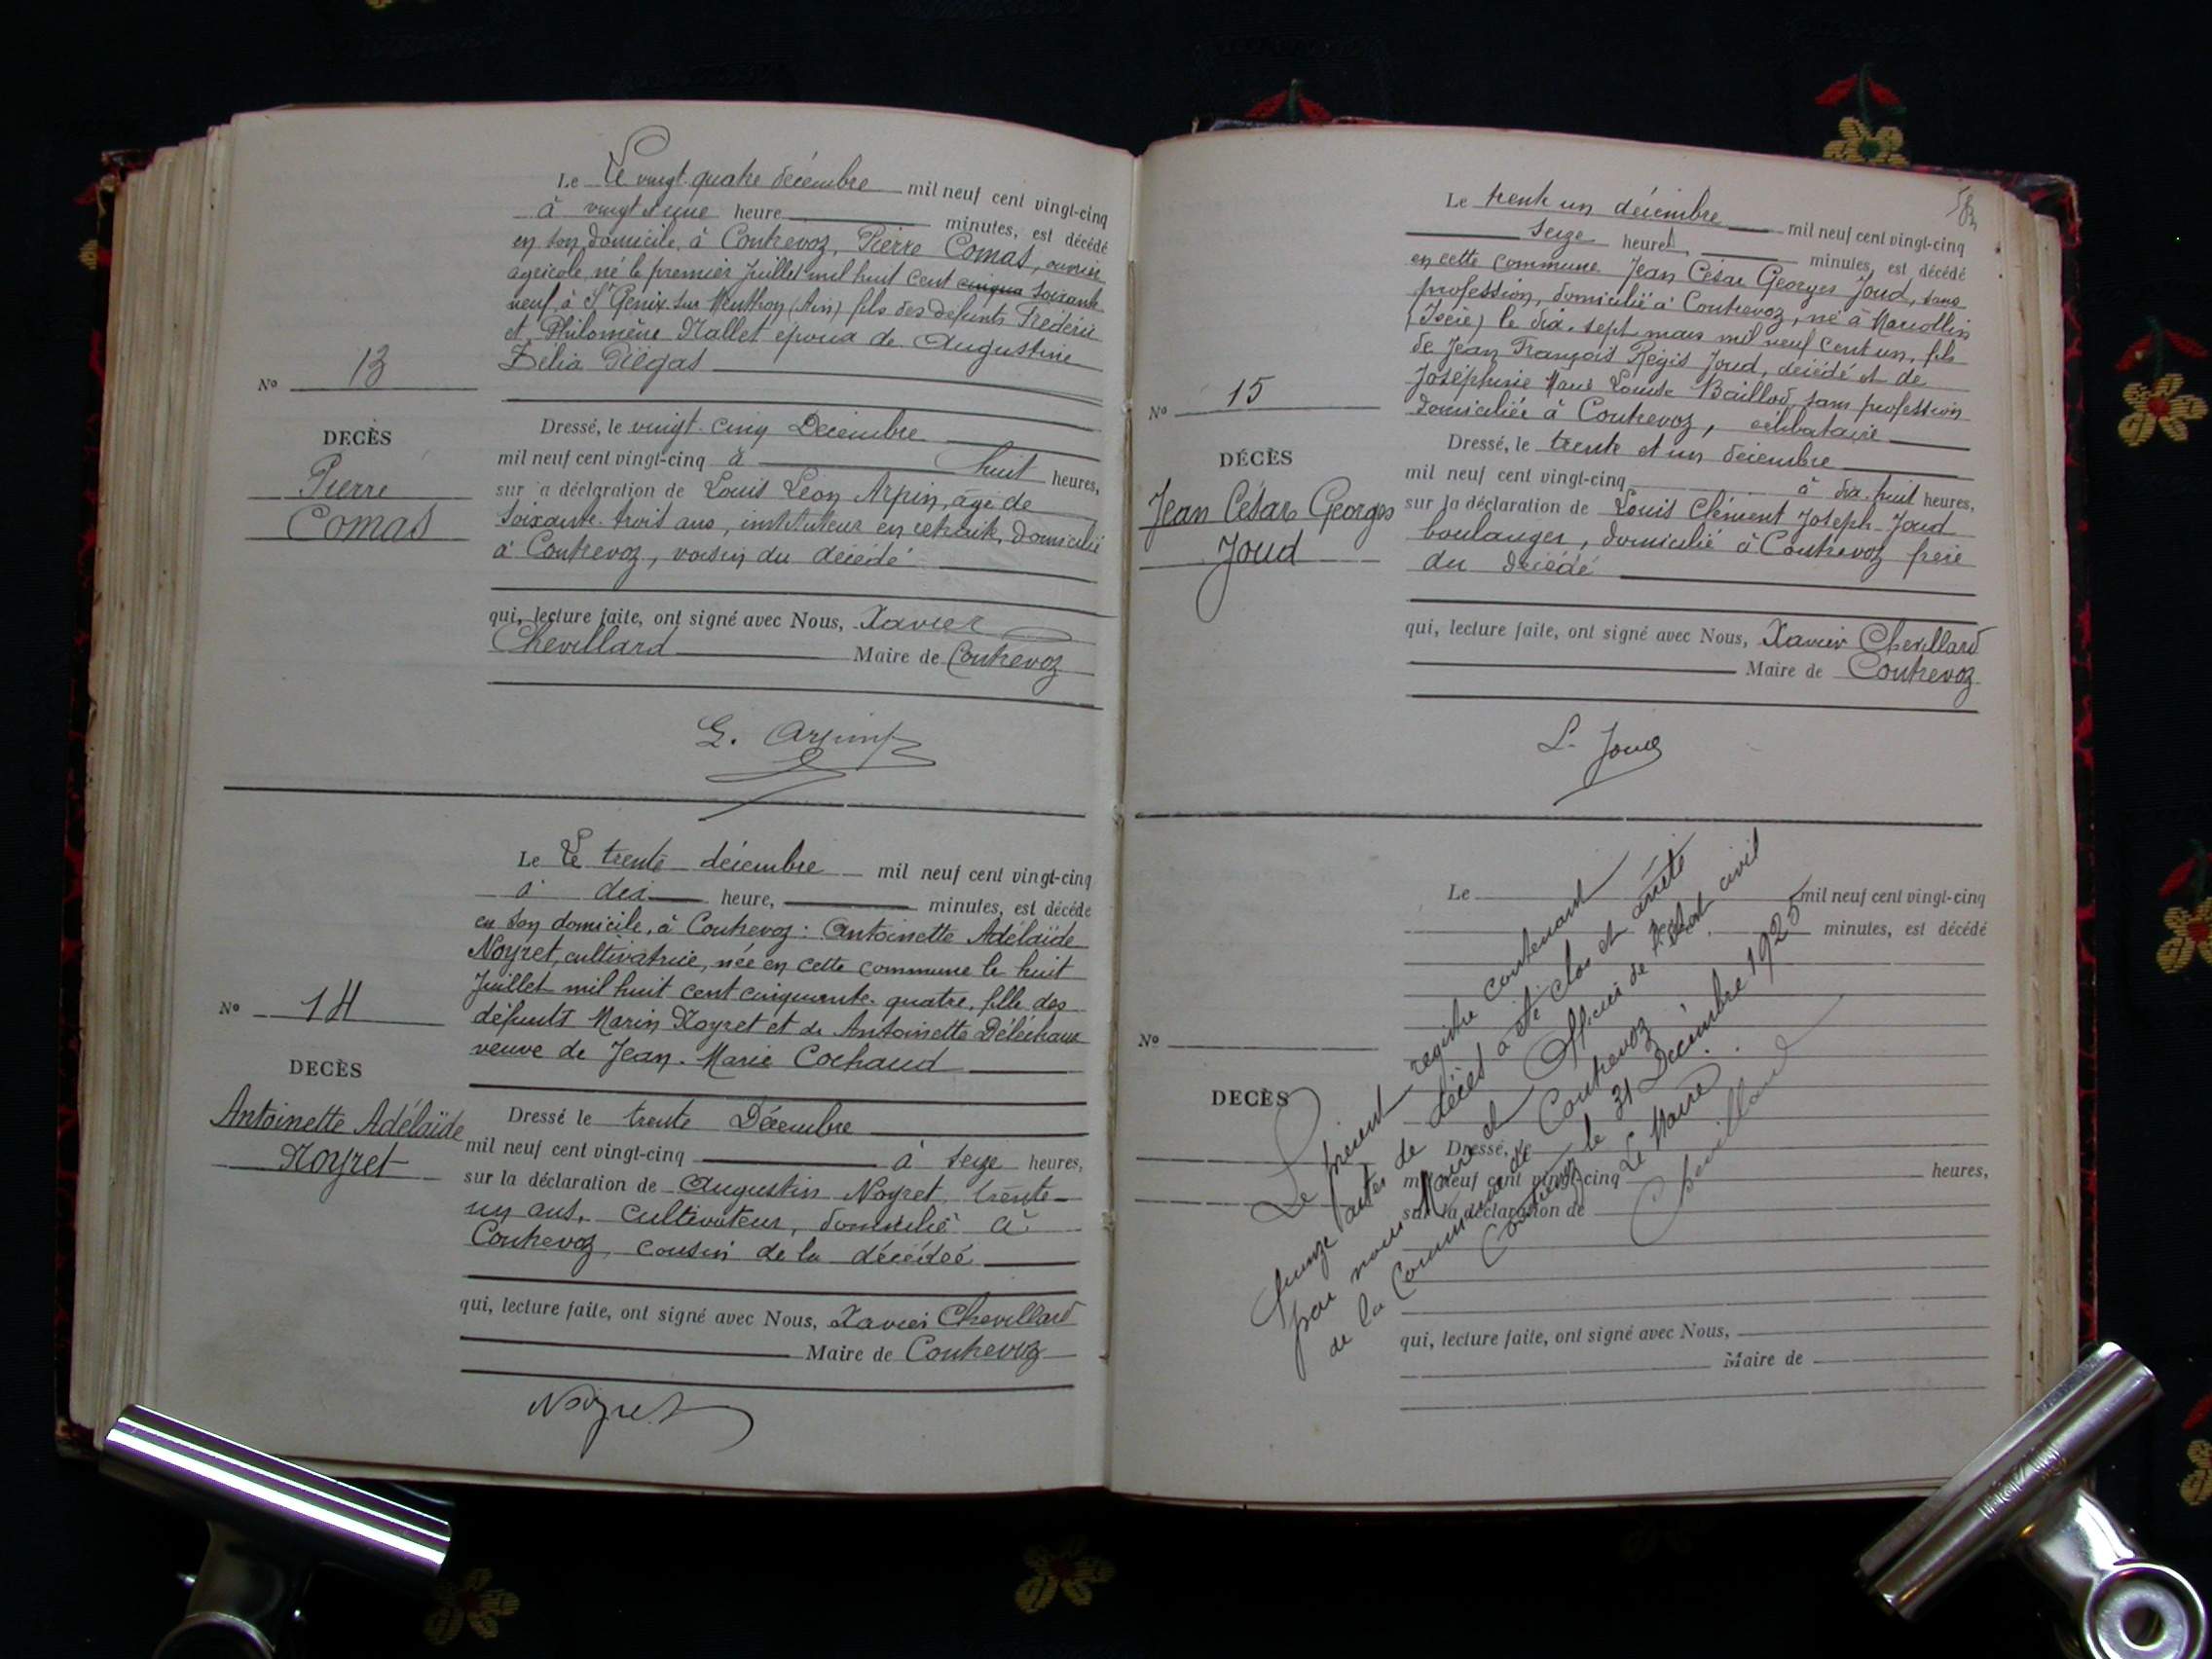 Le Le vingt quatre décembre mil neuf cent vingt-cinq
à vingt et une heure minutes, est décédé
en son domicile, à Contrevoz, Pierre Comas, ouvrier
agricole né le premier Juillet mil huit cent cinqua soixante
neuf à St Genix sur Menthon (Ain) fils des défunts Frédéric
et Philomène Nallet époux de Augustine
Délia
No 13
DECÈS
Pierre
Comas
Dressé, le vingt-cinq Décembre
mil neuf cent vingt-cinq à huit heures,
sur a déclaration de Louis Léon Arpin, âgé de
soixante-trois ans, instituteur en retraite, domicilié
à Contrevoz, voisin du décédé
qui, lecture faite, ont signé avec Nous, Xavier
Chevillard Maire de Contrevoz
L. Arpin
Le Le trente décembre mil neuf cent vingt-cinq
à dix heure, minutes, est décédé
en son domicile, à Contrevoz : Antoinette Adélaïde
Noyret, cultivatrice, née en cette commune le huit
Juillet mil huit cent cinquante-quatre, fille des
défunts Marin Noyret et de Antoinette
veuve de Jean-Marie Cochaud
No 14
DECÈS
Antoinette Adélaïde
Noyret
Dressé le trente Décembre
mil neuf cent vingt-cinq à seize heures,
sur la déclaration de Augustin Noyret, trente-
un ans, cultivateur, domicilié à
Contrevoz, cousin de la décédée
qui, lecture faite, ont signé avec Nous, Xavier Chevillard
Maire de Contrevoz
Noyret
Le trente un décembre mil neuf cent vingt-cinq
seize heures minutes, est décédé
en cette commune Jean César Georges Joud, sans
profession, domicilié à Contrevoz, né à Marcollin
(Isère) le dix-sept mars mil neuf cent un, fils
de Jean François Régis Joud, décédé et de
Joséphine Marie Louise Baillod, sans profession
domiciliée à Contrevoz, célibataire
No 15
DÉCÈS
Jean César Georges
Joud
Dressé, le trente et un décembre
mil neuf cent vingt-cinq à dix-huit heures,
sur la déclaration de Louis Clément Joseph Joud
boulanger, domicilié à Contrevoz frère
du décédé
qui, lecture faite, ont signé avec Nous, Xavier Chevillard
Maire de Contrevoz
L. Joud
Le mil neuf cent vingt-cinq
minutes, est décédé
No
DECÈS
Dressé, le
mil neuf cent vingt-cinq heures,
sur la déclaration de
qui, lecture faite, ont signé avec Nous,
Maire de
Le présent registre contenant
quinze actes de décès a été clos et arrêté
par nous Maire et Officier de l'état civil
de la Commune de Contrevoz
Contrevoz le 31 Décembre 1925
Le Maire
Chevillard